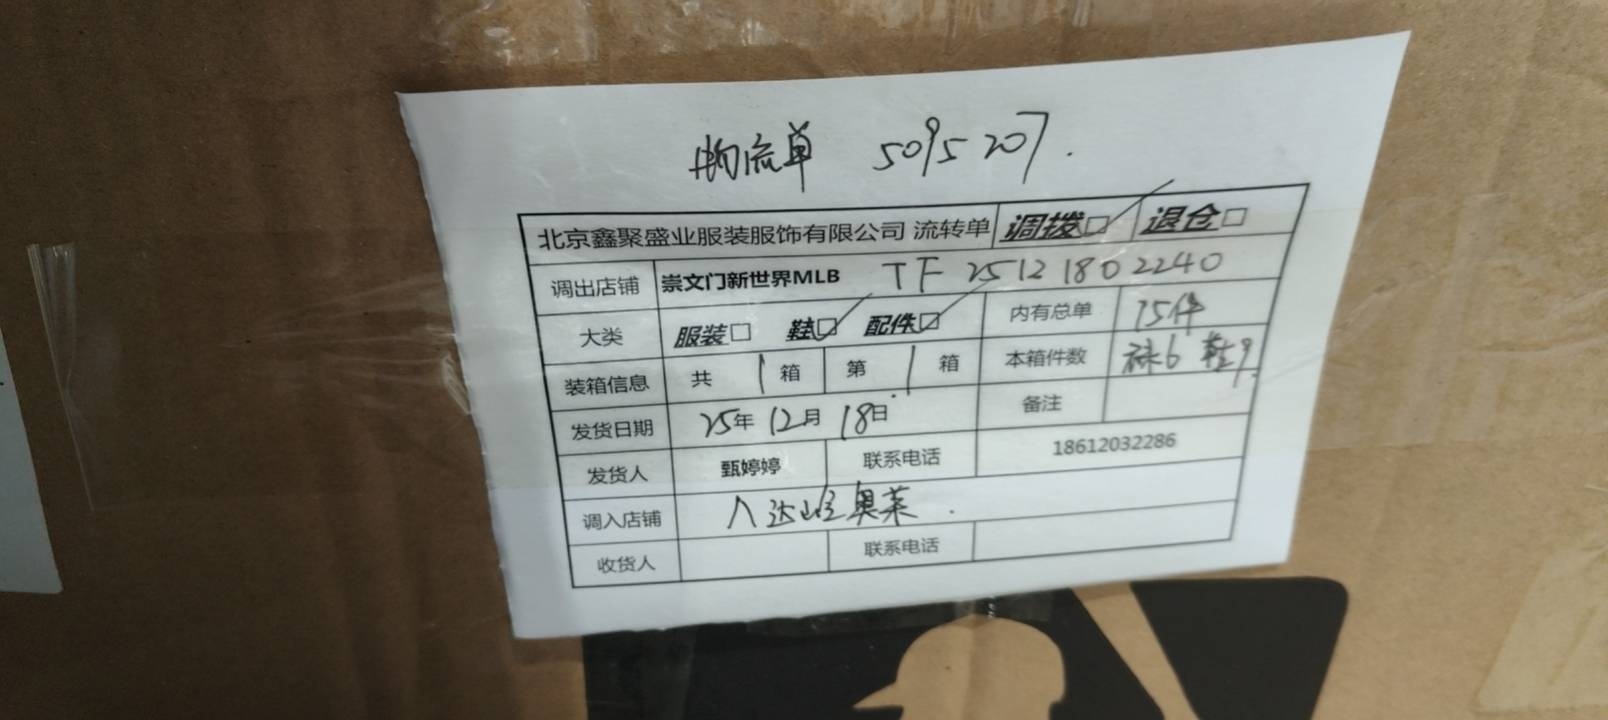 物流单 5095207.
北京鑫聚盛业服装服饰有限公司 流转单 调拨□ 退仓□
调出店铺 崇文门新世界MLB TF 25121802240
大类 服装□ 鞋□ 配件□ 内有总单 15件
装箱信息 共 1 箱 第 1 箱 本箱件数 袜6 鞋9.
发货日期 25年12月18日 备注
发货人 甄婷婷 联系电话 18612032286
调入店铺 八达岭奥莱.
收货人 联系电话